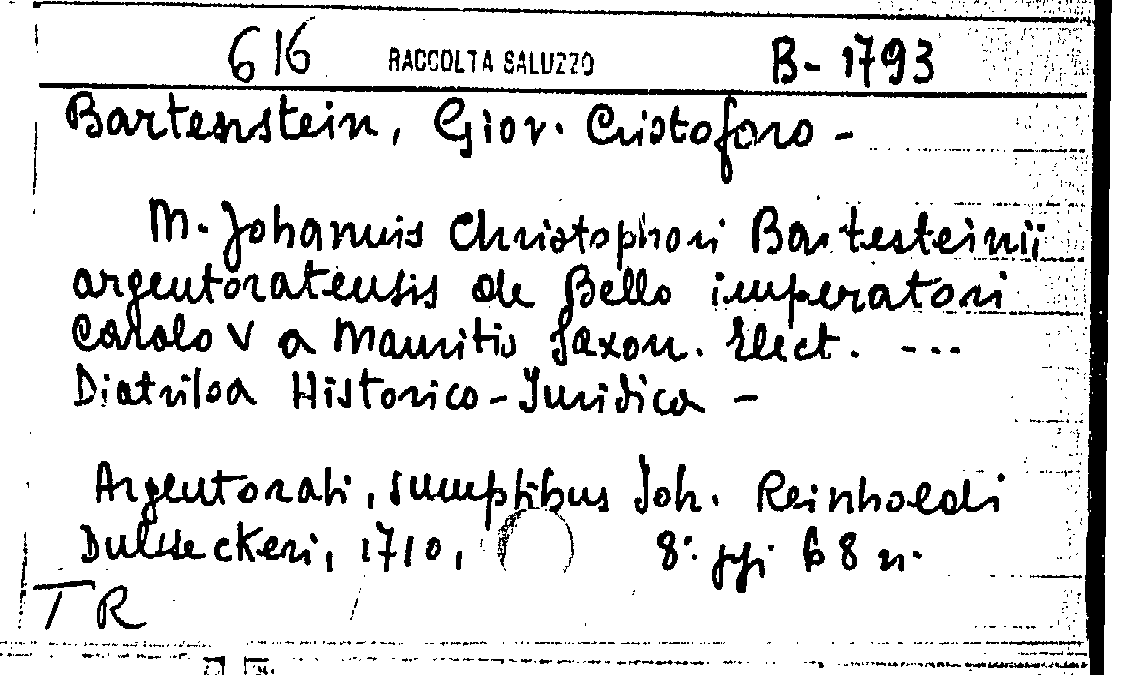 616 RACCOLTA SALUZZO B-1793
Bartenstein, Giov. Cristoforo -
M. Johannis Christophori Bartesteinii
argentoratensis de Bello imperatori
Carolo V a Mauritio Saxon. Elect. ---
Diatriba Historico-Juridica -
Argentorati, sumptibus Joh. Reinholdi
Dulsseckeri, 1710, 8° ppi 68 n.
TR